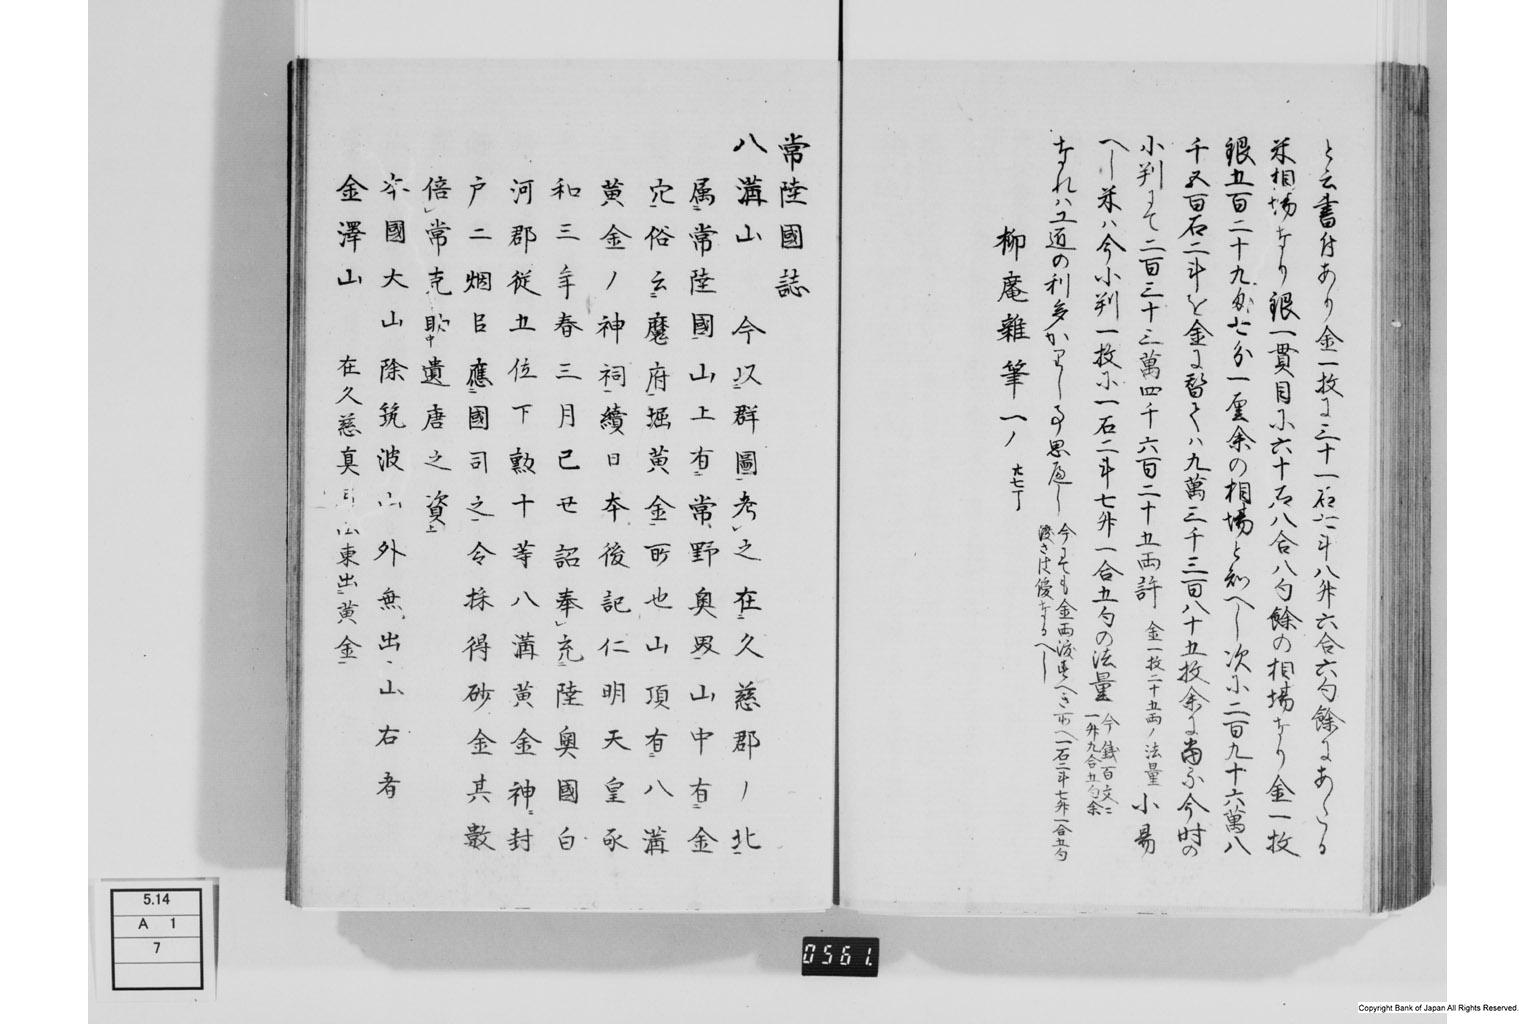 と云書付あり金一枚に三十一石六斗八升六合六勺餘にあたる
米相場なり銀一貫目に六十石八合八勺餘の相場なり金一枚
銀五百二十九匁七分一厘余の相場と知へし次に二百九十六萬八
千五百石二斗を金に替ては九萬三千三百八十五枚余に當る今時の
小判にて二百三十三萬四千六百二十五両許 金一枚二十五両ノ法量 小易
へし米は今小判一枚に一石二斗七升一合五勺の法量 今銭百文ニ一升九合五勺余
なれハ工道の利多かりし事思へし 今にても金西渡すへき所へ一石二斗七升一合五勺渡さは優なるへし
柳庵雜筆 一ノ 六七丁
常陸國誌
八溝山 今以群圖考之在久慈郡ノ北
属常陸國山上有常野奥界山中有金
穴俗云魔府堀黄金所也山頂有八溝
黄金ノ神祠續日本後記仁明天皇承
和三年春三月己丑詔奉充陸奥國白
河郡従五位下勲十等八溝黄金神封
戸二烟以應國司之令採得砂金其數
倍常克助中遣唐之資上
本國大山除筑波山外無出山右者
金澤山 在久慈真弓山東出黄金
5.14
A 1
7
0561.
Copyright Bank of Japan All Rights Reserved.